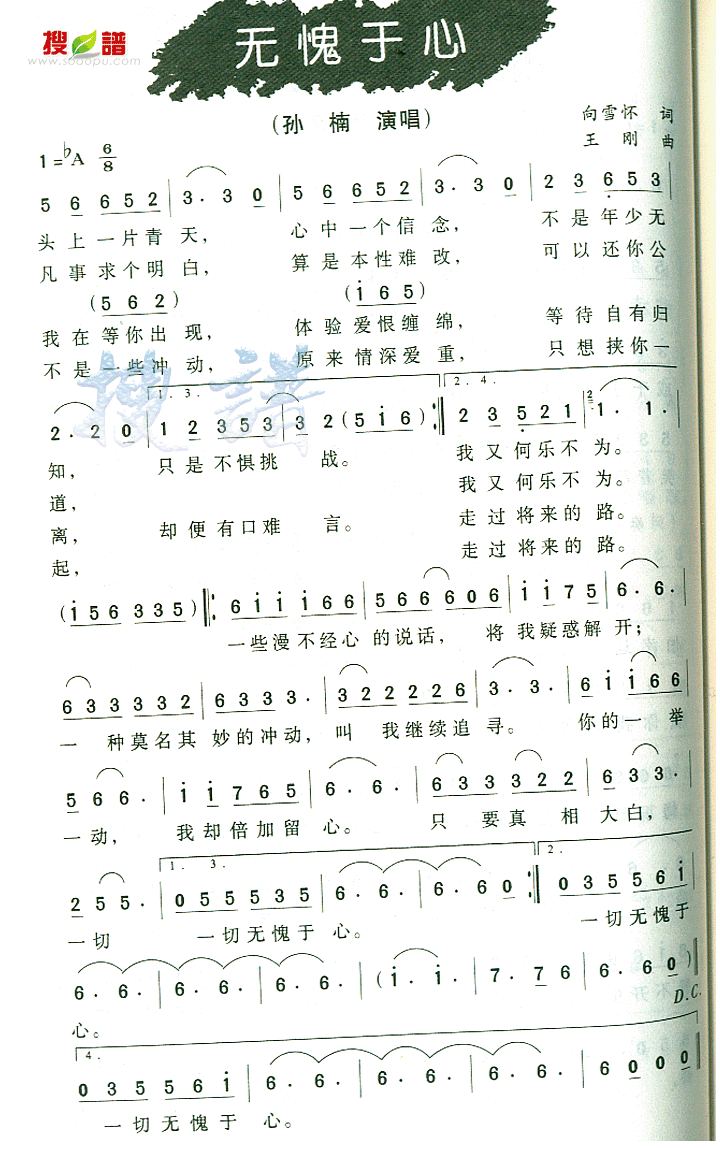 搜谱
www.sooopu.com
无愧于心
(孙 楠 演唱)
向雪怀 词
王 刚 曲
1=♭A 6/8
5 6 6 5 2 | 3. 3 0 | 5 6 6 5 2 | 3. 3 0 | 2 3 6 5 3
头上一片青天， 心中一个信念， 不是年少无
凡事求个明白， 算是本性难改， 可以还你公
(5 6 2) (i 6 5)
我在等你出现， 体验爱恨缠绵， 等待自有归
不是一些冲动， 原来情深爱重， 只想挟你一
搜谱
1. 3. 2. 4.
2. 2 0 | 1 2 3 5 3 | 3 2 (5 i 6) :‖ 2 3 5 2 1 | 2 1. 1.
知， 只是不惧挑 战。 我又何乐不 为。
道， 我又何乐不 为。
离， 却便有口难 言。 走过将来的 路。
起， 走过将来的 路。
(i 5 6 3 3 5) ‖: 6 i i i 6 6 | 5 6 6 6 0 6 | i i 7 5 | 6. 6.
一些漫不经心 的说话， 将我疑惑解 开；
6 3 3 3 3 2 | 6 3 3 3. | 3 2 2 2 2 6 | 3. 3. | 6 i i 6 6
一 种莫名其 妙的冲动， 叫 我继续追 寻。 你的一 举
5 6 6. | i i 7 6 5 | 6. 6. | 6 3 3 3 2 2 | 6 3 3.
一动， 我却倍加留 心。 只 要真 相 大白，
1. 3. 2.
2 5 5. | 0 5 5 5 3 5 | 6. 6. | 6. 6 0 :‖ 0 3 5 5 6 i
一切 一切无愧于 心。 一切无愧于
6. 6. | 6. 6. | 6. 6. | (i. i. | 7. 7 6 | 6. 6 0)
心。 D.C.
4.
0 3 5 5 6 i | 6. 6. | 6. 6. | 6. 6. | 6 0 0 0
一切无愧于 心。